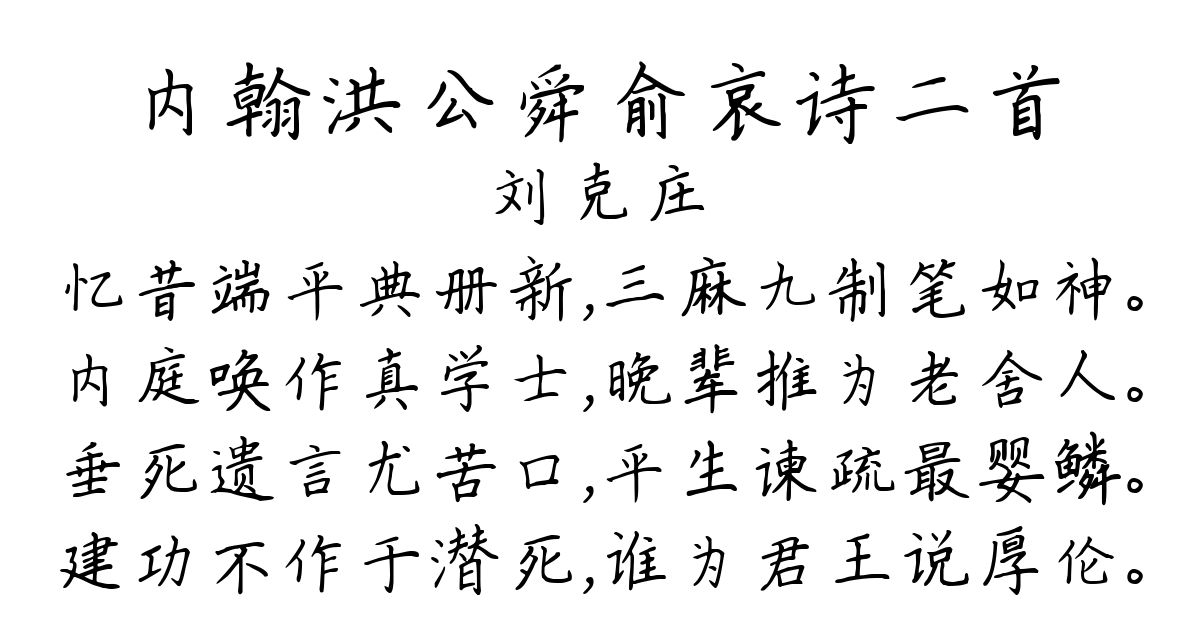 内翰洪公舜俞哀诗二首
刘克庄
忆昔端平典册新,三麻九制笔如神。
内庭唤作真学士,晚辈推为老舍人。
垂死遗言尤苦口,平生谏疏最婴鳞。
建功不作于潜死,谁为君王说厚伦。